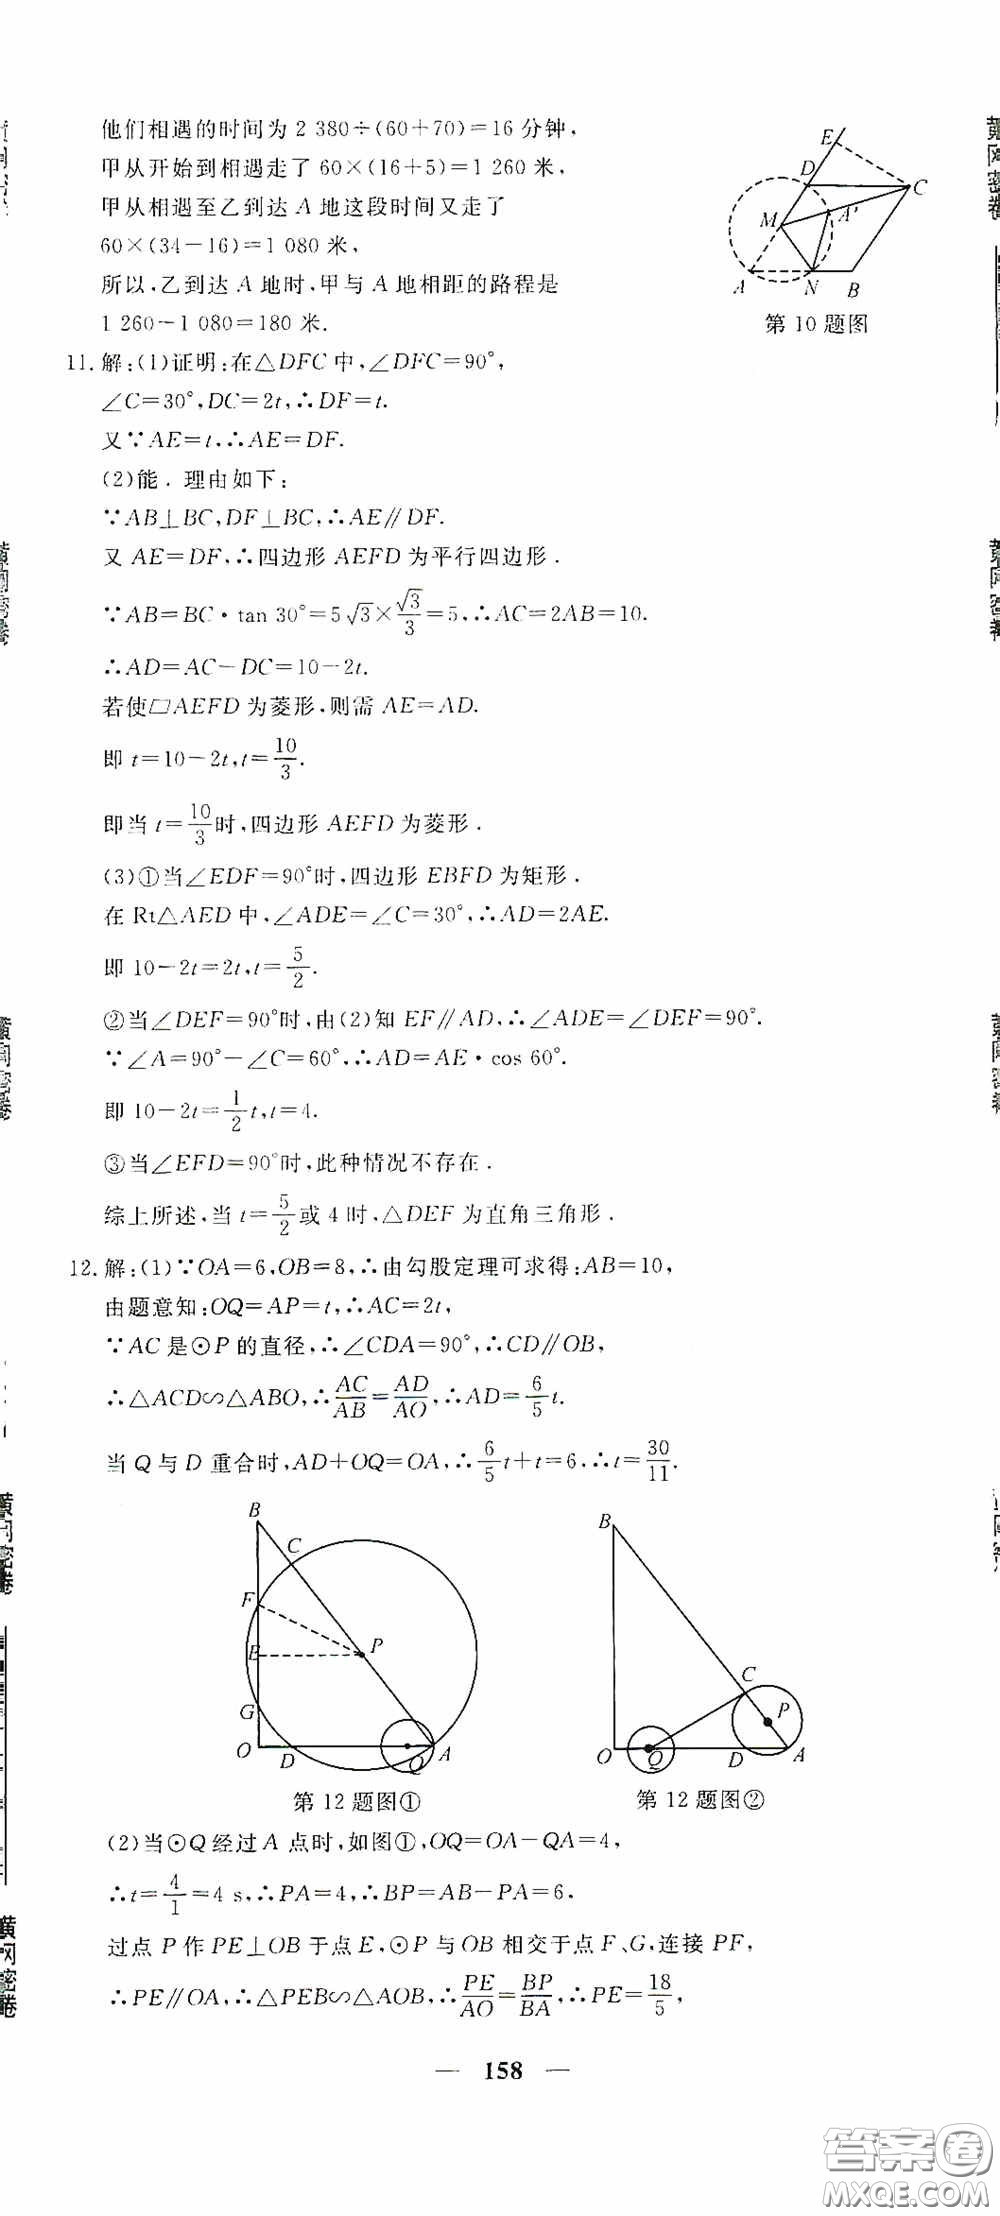 他们相遇的时间为 2 380÷(60+70)=16 分钟,
甲从开始到相遇走了 60×(16+5)=1 260 米,
甲从相遇至乙到达 A 地这段时间又走了
60×(34-16)=1 080 米,
所以,乙到达 A 地时,甲与 A 地相距的路程是
1 260-1 080=180 米.
E
D
C
M
A'
A
N
B
第 10 题图
11. 解:(1)证明:在△DFC 中,∠DFC=90°,
∠C=30°,DC=2t,∴DF=t.
又∵AE=t,∴AE=DF.
(2)能. 理由如下:
∵AB⊥BC,DF⊥BC,∴AE∥DF.
又 AE=DF,∴四边形 AEFD 为平行四边形.
∵AB=BC·tan 30°=5√3×√3/3=5,∴AC=2AB=10.
∴AD=AC-DC=10-2t.
若使▱AEFD 为菱形,则需 AE=AD.
即 t=10-2t,t=10/3.
即当 t=10/3时,四边形 AEFD 为菱形.
(3)①当∠EDF=90°时,四边形 EBFD 为矩形.
在 Rt△AED 中,∠ADE=∠C=30°,∴AD=2AE.
即 10-2t=2t,t=5/2.
②当∠DEF=90°时,由(2)知 EF∥AD,∴∠ADE=∠DEF=90°.
∵∠A=90°-∠C=60°,∴AD=AE·cos 60°.
即 10-2t=1/2t,t=4.
③当∠EFD=90°时,此种情况不存在.
综上所述,当 t=5/2或 4 时,△DEF 为直角三角形.
12. 解:(1)∵OA=6,OB=8,∴由勾股定理可求得:AB=10,
由题意知:OQ=AP=t,∴AC=2t,
∵AC 是⊙P 的直径,∴∠CDA=90°,∴CD∥OB,
∴△ACD∽△ABO,∴AC/AB=AD/AO,∴AD=6/5t.
当 Q 与 D 重合时,AD+OQ=OA,∴6/5t+t=6,∴t=30/11.
B
C
F
E
P
G
O
D
Q
A
第 12 题图①
B
C
P
O
Q
D
A
第 12 题图②
(2)当⊙Q 经过 A 点时,如图①,OQ=OA-QA=4,
∴t=4/1=4 s,∴PA=4,∴BP=AB-PA=6.
过点 P 作 PE⊥OB 于点 E,⊙P 与 OB 相交于点 F、G,连接 PF,
∴PE∥OA,∴△PEB∽△AOB,∴PE/AO=BP/BA,∴PE=18/5,
— 158 —
黄冈密卷
答案卷
MXQE.COM